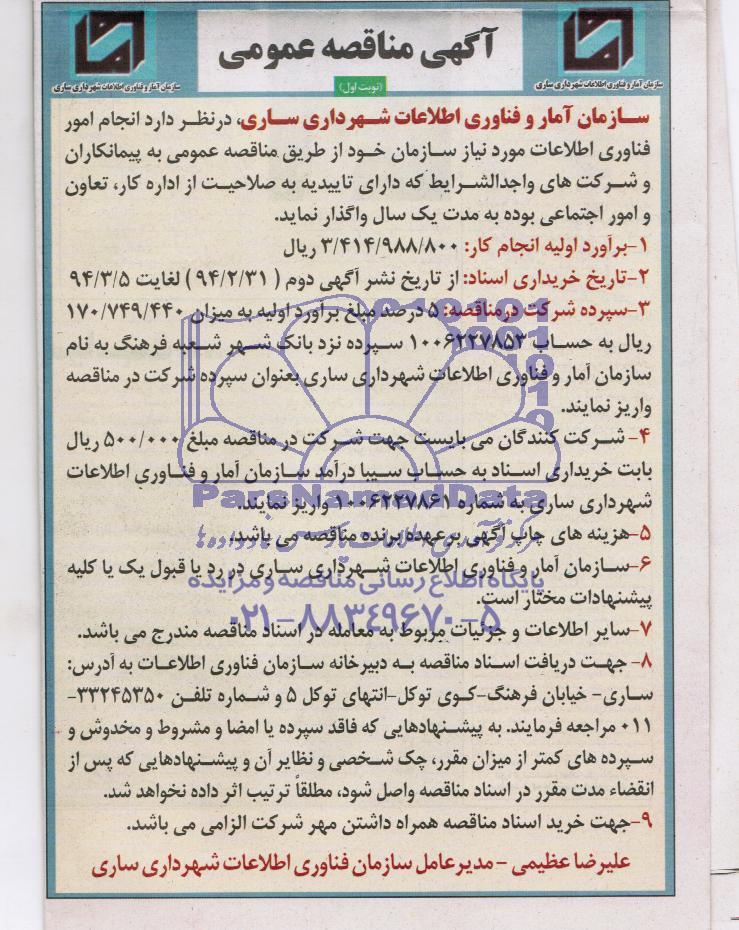 آگهی مناقصه عمومی
(نوبت اول)
سازمان آمار و فناوری اطلاعات شهرداری ساری
سازمان آمار و فناوری اطلاعات شهرداری ساری
سازمان آمار و فناوری اطلاعات شهرداری ساری، درنظر دارد انجام امور
فناوری اطلاعات مورد نیاز سازمان خود از طریق مناقصه عمومی به پیمانکاران
و شرکت های واجدالشرایط که دارای تاییدیه به صلاحیت از اداره کار، تعاون
و امور اجتماعی بوده به مدت یک سال واگذار نماید.
۱-برآورد اولیه انجام کار: ۳/۴۱۴/۹۸۸/۸۰۰ ریال
۲-تاریخ خریداری اسناد: از تاریخ نشر آگهی دوم ( ۹۴/۲/۳۱ ) لغایت ۹۴/۳/۵
۳-سپرده شرکت درمناقصه: ۵ درصد مبلغ برآورد اولیه به میزان ۱۷۰/۷۴۹/۴۴۰
ریال به حساب ۱۰۰۶۲۲۷۸۵۳ سپرده نزد بانک شهر شعبه فرهنگ به نام
سازمان آمار و فناوری اطلاعات شهرداری ساری بعنوان سپرده شرکت در مناقصه
واریز نمایند.
۴- شرکت کنندگان می بایست جهت شرکت در مناقصه مبلغ ۵۰۰/۰۰۰ ریال
بابت خریداری اسناد به حساب سیبا درآمد سازمان آمار و فناوری اطلاعات
شهرداری ساری به شماره ۱۰۰۶۲۲۷۸۶۱ واریز نمایند.
ParsNamadData
۵-هزینه های چاپ آگهی برعهده برنده مناقصه می باشد.
۶-سازمان آمار و فناوری اطلاعات شهرداری ساری در رد یا قبول یک یا کلیه
پایگاه اطلاع رسانی مناقصه و مزایده
پیشنهادات مختار است.
۰۲۱-۸۸۳۴۹۶۷۰-۵
۷-سایر اطلاعات و جزئیات مربوط به معامله در اسناد مناقصه مندرج می باشد.
۸- جهت دریافت اسناد مناقصه به دبیرخانه سازمان فناوری اطلاعات به آدرس:
ساری- خیابان فرهنگ-کوی توکل-انتهای توکل ۵ و شماره تلفن ۳۳۲۴۵۳۵۰-
۰۱۱ مراجعه فرمایند. به پیشنهادهایی که فاقد سپرده یا امضا و مشروط و مخدوش و
سپرده های کمتر از میزان مقرر، چک شخصی و نظایر آن و پیشنهادهایی که پس از
انقضاء مدت مقرر در اسناد مناقصه واصل شود، مطلقاً ترتیب اثر داده نخواهد شد.
۹-جهت خرید اسناد مناقصه همراه داشتن مهر شرکت الزامی می باشد.
علیرضا عظیمی - مدیرعامل سازمان فناوری اطلاعات شهرداری ساری